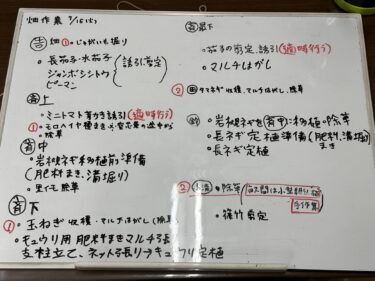 畑作業 5/15(木)
吉畑 ①・じゃがいも掘り
・長茄子・水茄子
ジャンボシシトウ
ピーマン
(誘引剪定)
斎上
・ミニトマト芽かき誘引(適時行う)
①・モロヘイヤ種まき
・除草
斎中
・岩槻ネギ移植前準備
(肥料まき、溝掘り)
・里イモ除草
斎下
①・玉ねぎ収穫・マルチはがし(除草)
・キュウリ用肥料まきマルチ張り
支柱立て、ネット張り→キュウリ定植
斎最下
・茄子の剪定、誘引(適時行う)
・マルチはがし
② タマネギ収穫、マルチはがし、除草
鈴
・岩槻ネギを(斎中)に移植・除草
・長ネギ定植準備(肥料、溝掘り)
まき
・長ネギ定植
② ・除草
手作業
・篠竹剪定